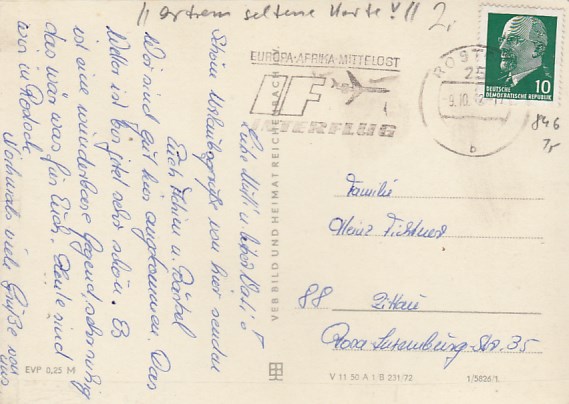 !! extrem seltene Karte!!! 2,-
EUROPA-AFRIKA-MITTELOST
IF
INTERFLUG
ROST
25
-9.10.
b
10
DEUTSCHE
DEMOKRATISCHE REPUBLIK
846
7,-
Liebe Mutti u. lieber Vati!
Schöne Urlaubsgrüße von hier senden
Euch Heinz u. Bärbel
Wir sind gut hier angekommen. Das
Wetter ist bis jetzt sehr schön. Es
ist eine wunderbare Gegend, sehr ruhig
das wär was für Euch. Heute sind
wir in Rostock.
Nochmals viele Grüße von
uns
VEB BILD UND HEIMAT REICHENBACH I. V.
Familie
Heinz Fichtner
88 Zittau
Rosa-Luxemburg-Str. 35
EVP 0,25 M
V 11 50 A 1 B 231/72
1/5825/1